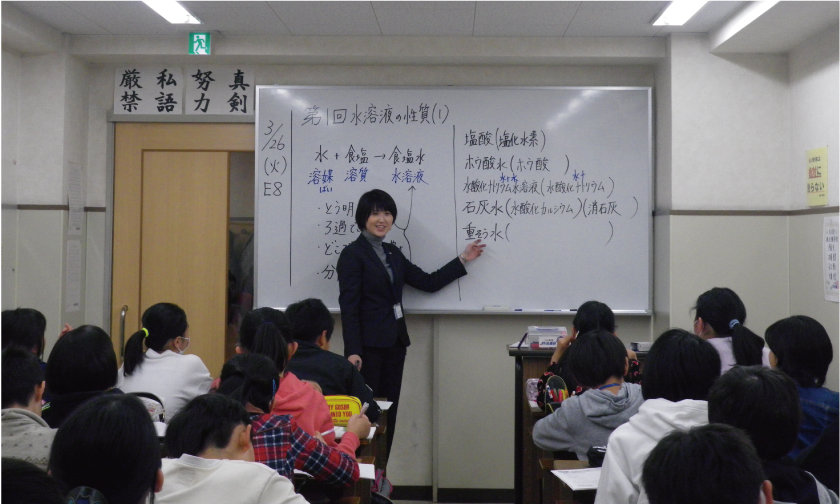 厳禁
私語
努力
真剣
3/26
(火)
E8
第1回水溶液の性質(1)
水 + 食塩 → 食塩水
溶媒 溶質 水溶液
ばい
・とう明
・ろ過
・どこ
・分
塩酸(塩化水素)
ホウ酸水(ホウ酸 )
水酸化ナトリウム水溶液(水酸化ナトリウム)
石灰水(水酸化カルシウム)(消石灰 )
重そう水( )